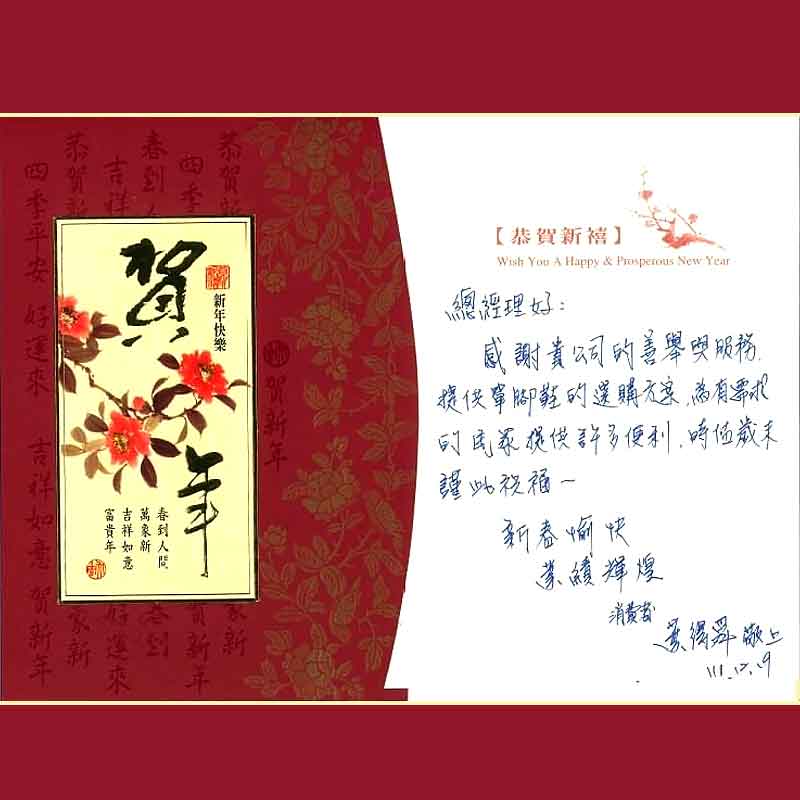 恭賀新禧
四季平安 好運來 吉祥如意 賀新年
賀年
新年快樂
春到人間
萬象新
吉祥如意
富貴年
賀新年
【恭賀新禧】
Wish You A Happy & Prosperous New Year
總經理好:
感謝貴公司的善舉與服務,
提供單腳鞋的選購方案,為有需求
的民眾提供許多便利,時值歲末
謹此祝福~
新春愉快
業績輝煌
消費者
敬上
111.12.19